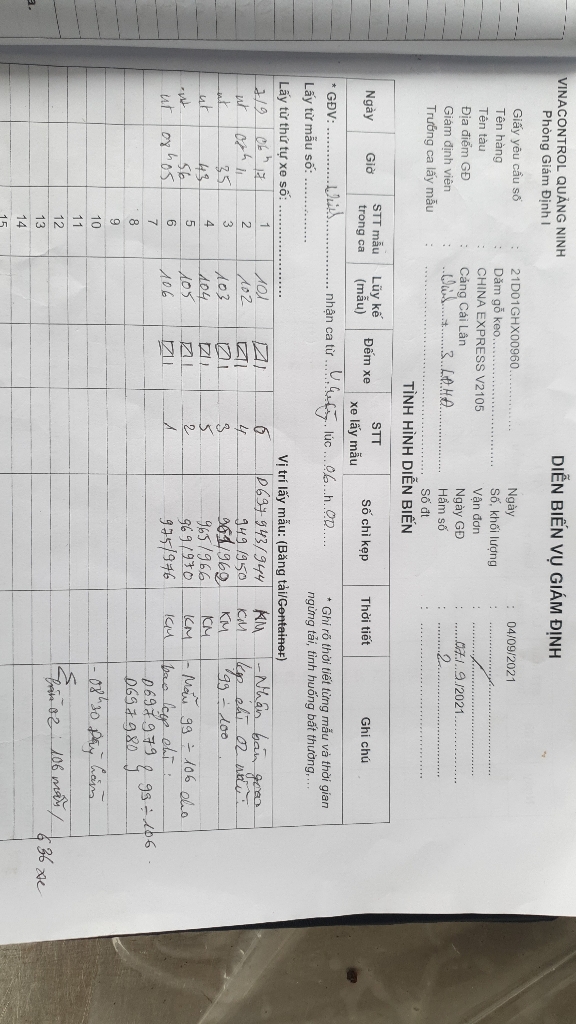 VINACONTROL QUẢNG NINH
Phòng Giám Định I
DIỄN BIẾN VỤ GIÁM ĐỊNH
Giấy yêu cầu số : 21D01GHX00960 Ngày : 04/09/2021
Tên hàng : Dăm gỗ keo Số, khối lượng :
Tên tàu : CHINA EXPRESS V2105 Vận đơn :
Địa điểm GĐ : Cảng Cái Lân Ngày GĐ : 07/9/2021
Giám định viên : Hầm số : 2
Trưởng ca lấy mẫu : Số đt :
TÌNH HÌNH DIỄN BIẾN
* GĐV: nhận ca từ lúc 06 h 00
* Ghi rõ thời tiết từng mẫu và thời gian
ngừng tải, tình huống bất thường,...
Lấy từ mẫu số:
Lấy từ thứ tự xe số: Vị trí lấy mẫu: (Băng tải/Container)
Ngày Giờ STT mẫu trong ca Lũy kế (mẫu) Đếm xe STT xe lấy mẫu Số chì kẹp Thời tiết Ghi chú
7/9 06h17 1 101 6 D697943/944 KM - Nhân bàn giao
nt 08h11 2 102 4 949/950 KM kẹp chì 02 mẫu:
nt 35 3 103 3 /962 KM 99 ÷ 100.
nt 43 4 104 5 965/966 KM
nt 56 5 105 2 969/970 KM - Mẫu 99 ÷ 106 cho
nt 08h05 6 106 1 975/976 KM bao kẹp chì:
7 D697979 & 99 ÷ 106.
8 D697980
9
10 - 08h30
11
12 02: 106 mẫu /
13 636 xe
14
15